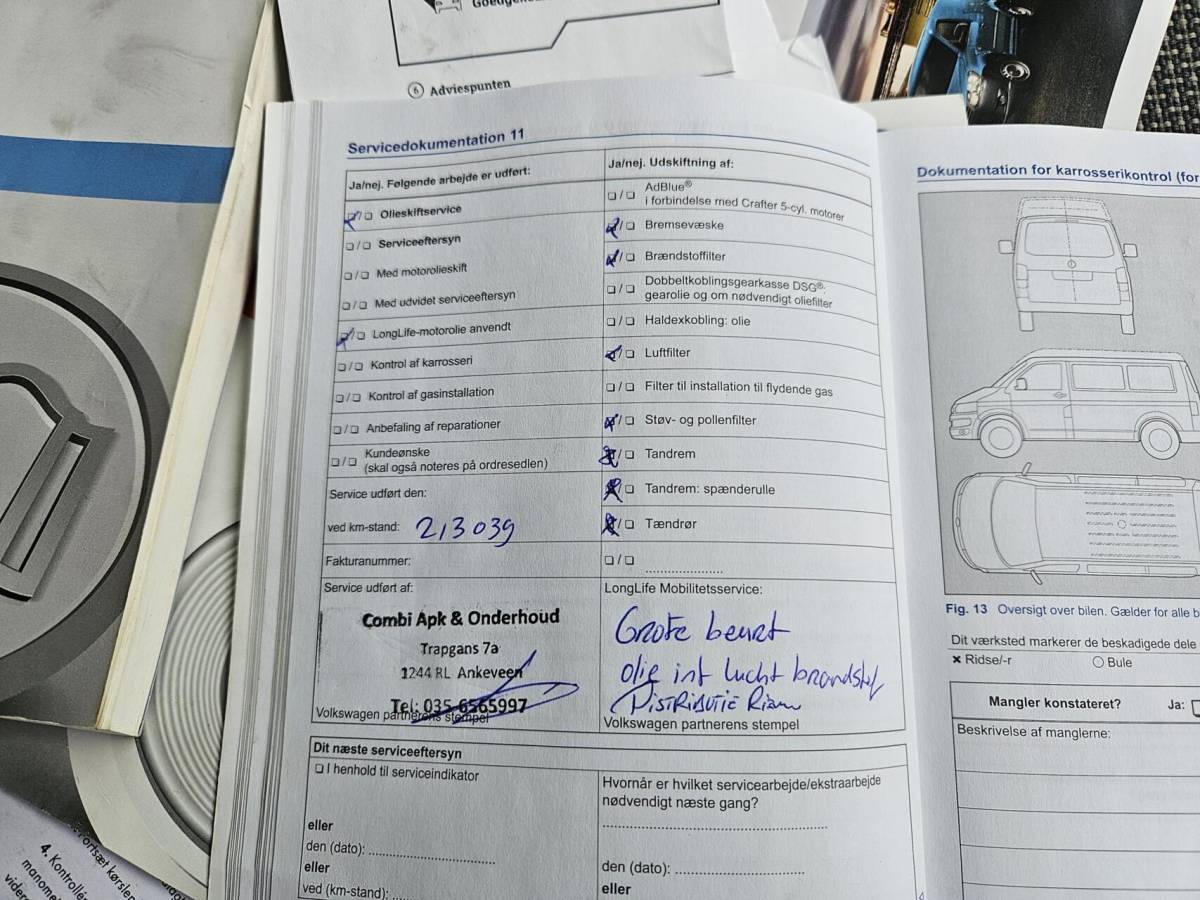 ⑥ Adviespunten
Servicedokumentation 11
Ja/nej. Følgende arbejde er udført:
❏/❏ Olieskiftservice
❏/❏ Serviceeftersyn
❏/❏ Med motorolieskift
❏/❏ Med udvidet serviceeftersyn
❏/❏ LongLife-motorolie anvendt
❏/❏ Kontrol af karrosseri
❏/❏ Kontrol af gasinstallation
❏/❏ Anbefaling af reparationer
❏/❏ Kundeønske
(skal også noteres på ordresedlen)
Service udført den:
ved km-stand: 213039
Fakturanummer:
Service udført af:
Combi Apk & Onderhoud
Trapgans 7a
1244 RL Ankeveen
Tel: 035-6565997
Volkswagen partnerens stempel
Ja/nej. Udskiftning af:
❏/❏ AdBlue®
i forbindelse med Crafter 5-cyl. motorer
❏/❏ Bremsevæske
❏/❏ Brændstoffilter
❏/❏ Dobbeltkoblingsgearkasse DSG®:
gearolie og om nødvendigt oliefilter
❏/❏ Haldexkobling: olie
❏/❏ Luftfilter
❏/❏ Filter til installation til flydende gas
❏/❏ Støv- og pollenfilter
❏/❏ Tandrem
❏/❏ Tandrem: spænderulle
❏/❏ Tændrør
❏/❏ ......................
LongLife Mobilitetsservice:
Grote beurt
olie int lucht brandstof
Distributie Riem
Volkswagen partnerens stempel
Dit næste serviceeftersyn
❏ I henhold til serviceindikator
eller
den (dato): ......................
eller
ved (km-stand):
Hvornår er hvilket servicearbejde/ekstraarbejde
nødvendigt næste gang?
den (dato): ......................
eller
Dokumentation for karrosserikontrol (for
Fig. 13 Oversigt over bilen. Gælder for alle b
Dit værksted markerer de beskadigede dele
× Ridse/-r ○ Bule
Mangler konstateret? Ja: ❏
Beskrivelse af manglerne:
Fortsæt kørslen
4. Kontrollér
manome